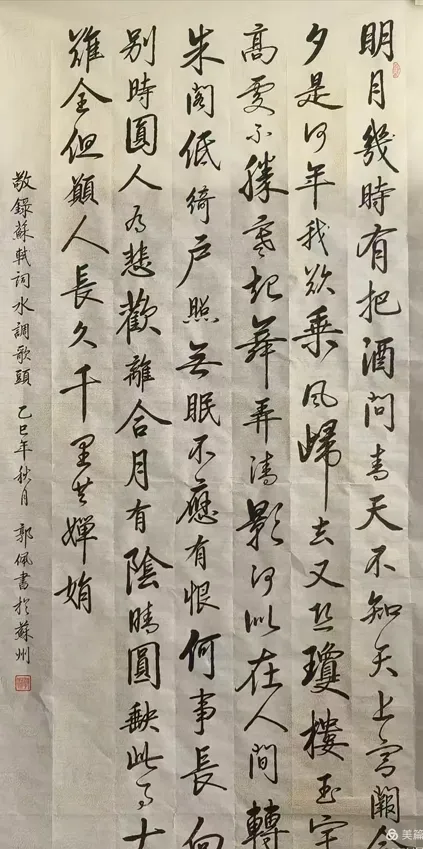 明月幾時有把酒問青天不知天上宮闕今
夕是何年我欲乘風歸去又恐瓊樓玉宇
高處不勝寒起舞弄清影何似在人間轉
朱閣低綺戶照無眠不應有恨何事長向
別時圓人有悲歡離合月有陰晴圓缺此事古
難全但願人長久千里共嬋娟
敬錄蘇軾詞水調歌頭 乙巳年秋月 郭佩書於蘇州
美篇